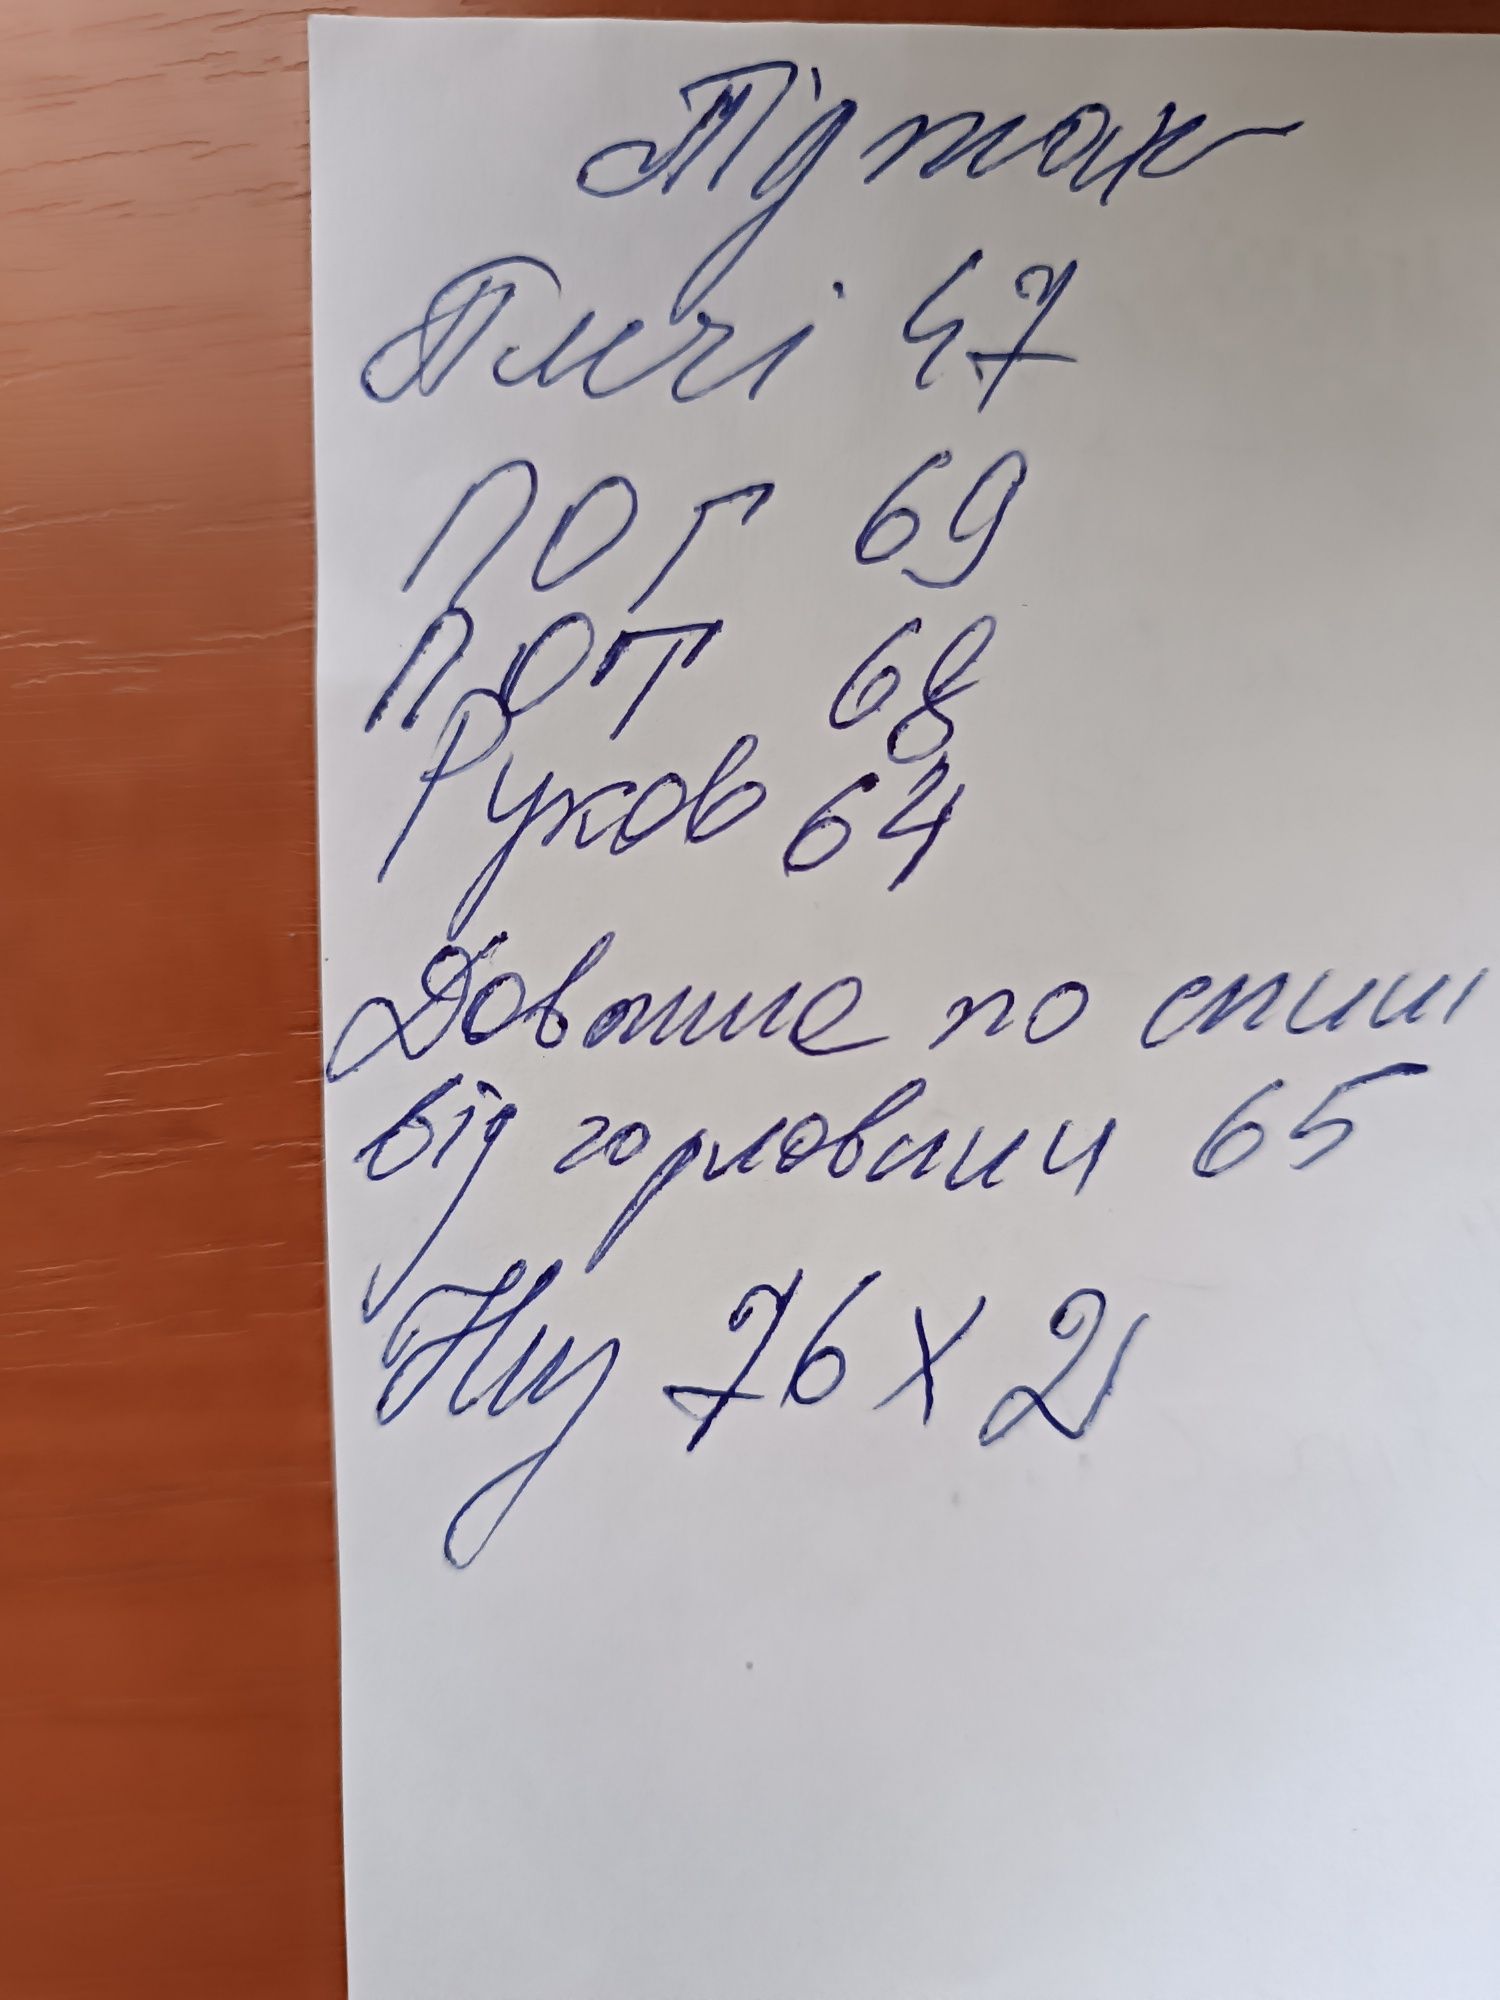 Піджак
Плечі 47
ПОГ 69
ПОТ 68
Рукав 64
Довжина по спині
від горловини 65
Низ 76 х 2